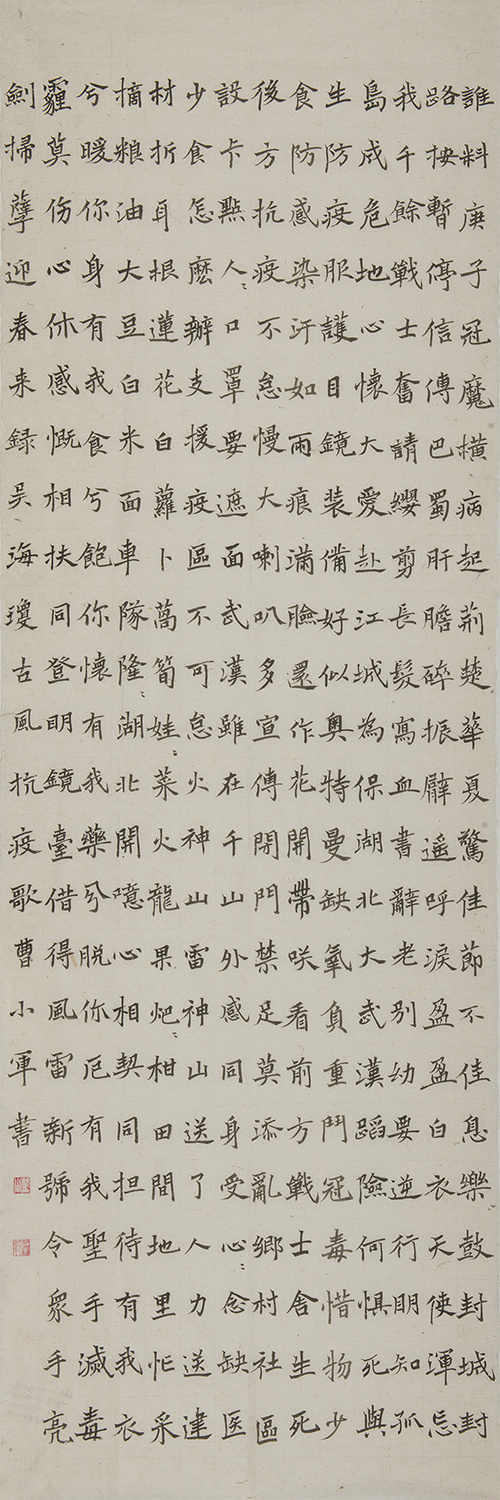 誰料庚子冠魔橫病起荊楚華夏驚佳節不佳息樂鼓封城封
路按暫停信傳巴蜀肝膽碎振臂遥呼淚盈盈白衣天使渾忘
我千餘戰士奮請纓剪長髮寫血書辭老别幼要逆行明知孤
島成危地心懷大愛赴江城為保湖北大武漢蹈險何惧死與
生防疫服護目鏡裝備好似奧特曼缺氧負重鬥冠毒惜物少
食防感染汗如雨痕滿臉還作花開帶咲看前方戰士舍生死
後方抗疫不怠慢大喇叭多宣傳閉門禁足莫添亂鄉村社區
設卡點人〻口罩要遮面武漢雖在千山外感同身受心〻念缺医
少食怎麽辦支援疫區不可怠火神山雷神山送了人力送建
材折耳根蓮花白蘿卜萵筍娃〻菜火龍果𤆵〻柑田間地里忙采
摘粮油大豆白米面車隊隆〻湖北開噫心相契同担待有我衣
兮暖你身有我食兮飽你懷有我藥兮脱你厄有我聖手滅毒
霾莫伤心休感慨相扶同登明鏡臺借得風雷新號令眾手亮
劍掃孽迎春来録吴海瓊古風抗疫歌曹小軍書